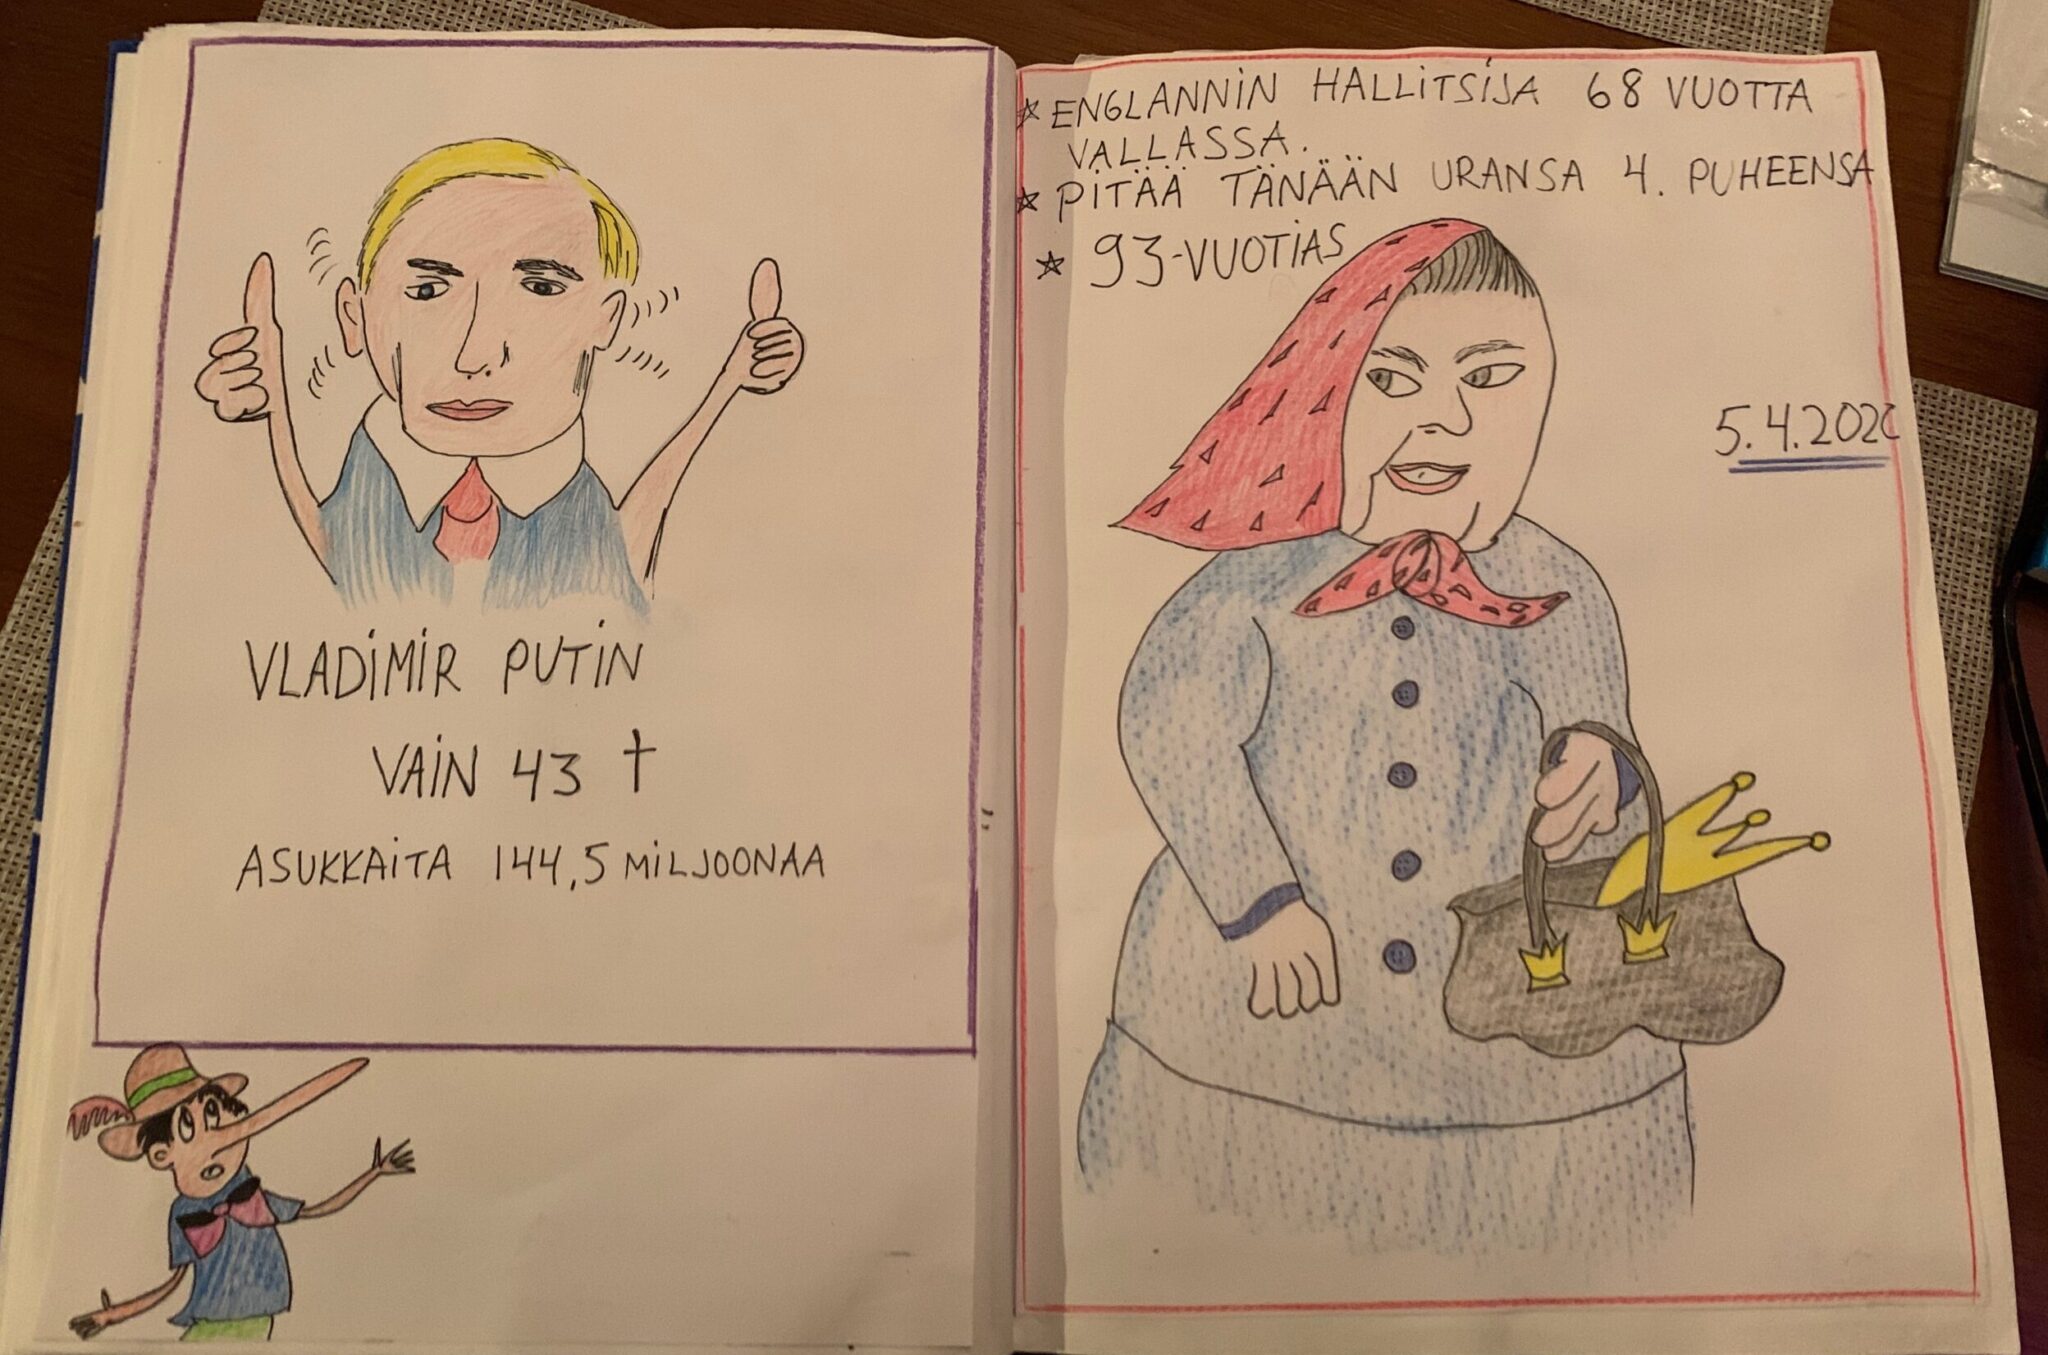 VLADIMIR PUTIN
VAIN 43 †
ASUKKAITA 144,5 MILJOONAA
☆ ENGLANNIN HALLITSIJA 68 VUOTTA
VALLASSA.
☆ PITÄÄ TÄNÄÄN URANSA 4. PUHEENSA
☆ 93-VUOTIAS
5.4.2020